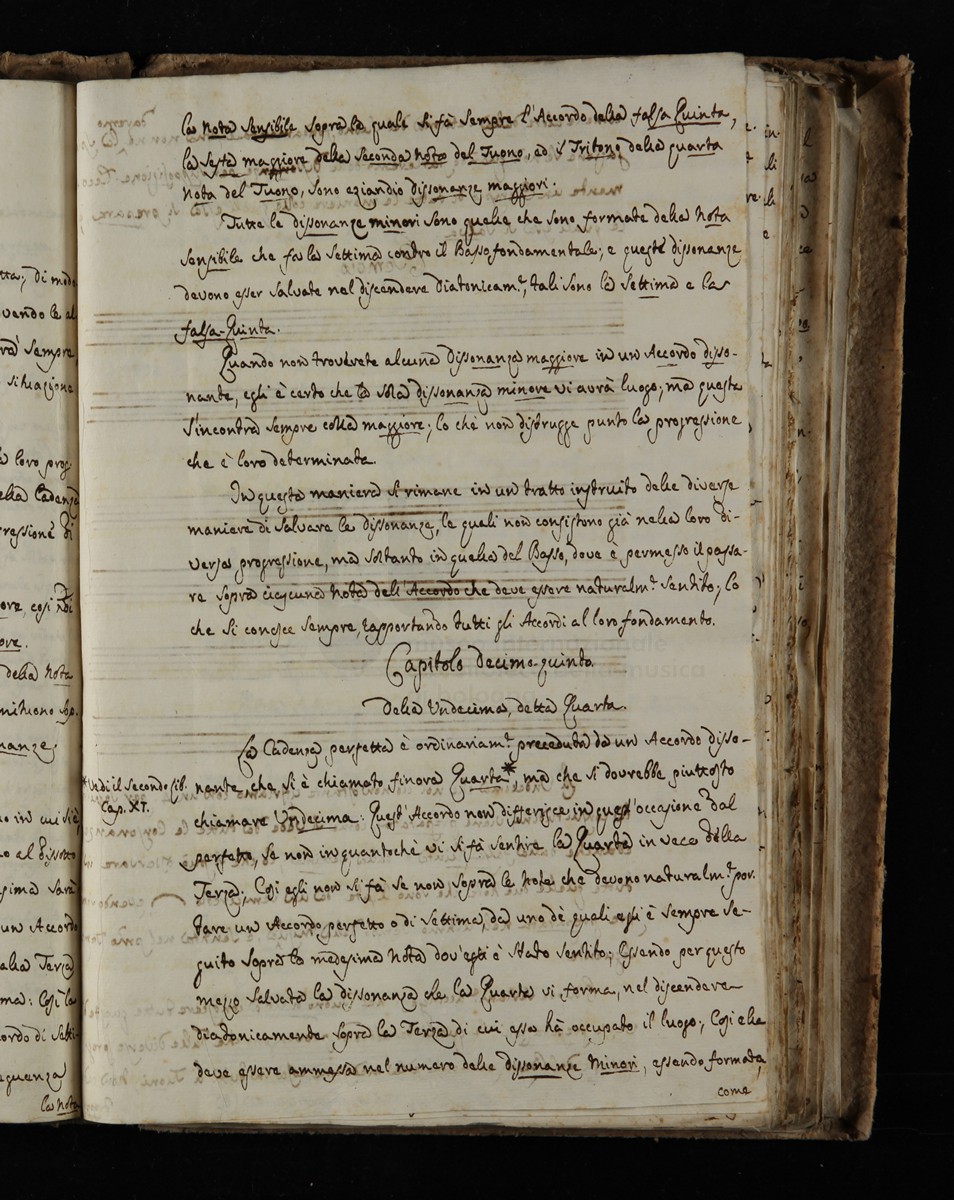 la nota Sensibile sopra la quale si fà sempre l'Accordo della falsa Quinta,
la sesta maggiore della seconda nota del Tuono, ed il Tritono della quarta
nota del Tuono, sono eziandio dissonanze maggiori.
Tutte le dissonanze minori sono quelle che sono formate della nota
sensibile che fa la settima contro il Basso fondamentale; e queste dissonanze
devono esser salvate nel discendere diatonicam.e, tali sono la settima e la
falsa-Quinta.
Quando non troverete alcuna dissonanza maggiore in un Accordo disso-
nante, egli è certo che la sola dissonanza minore vi avrà luogo; ma questa
s'incontra sempre colla maggiore; lo chè non distrugge punto la progressione
che è loro determinata.
In questa maniera si rimane in un tratto instruito delle diverse
maniere di salvare le dissonanze, le quali non consistono già nella loro di-
versa progressione, ma soltanto in quella del Basso, dove è permesso il passa-
re sopra ciascuna nota dell'Accordo che deve essere naturalm.e sentito; lo
che si conosce sempre, rapportando tutti gli Accordi al loro fondamento.
Capitolo decimo-quinto.
Della Undecima, detta Quarta.
La Cadenza perfetta è ordinariam.e preceduta da un Accordo disso-
nante, che, si è chiamato finora Quarta*, ma che si dovrebbe piuttosto
*Vedi il Secondo lib.
Cap. XI.
chiamare Undecima: Quest'Accordo non differisce in quest'occasione dal
perfetto, se non inquantochè vi si fà sentire la Quarta in vece della
Terza; Così egli non si fà se non sopra le note che devono naturalm.e por-
tare un Accordo perfetto o di settima, da uno dè quali egli è sempre se-
guito sopra la medesima nota dov'egli è stato sentito; Essendo per questo
mezzo salvata la dissonanza che la Quarta vi forma, nel discendere
diatonicamente sopra la Terza di cui essa hà occupato il luogo; Così ella
deve essere ammessa nel numero delle dissonanze Minori, essendo formata,
come